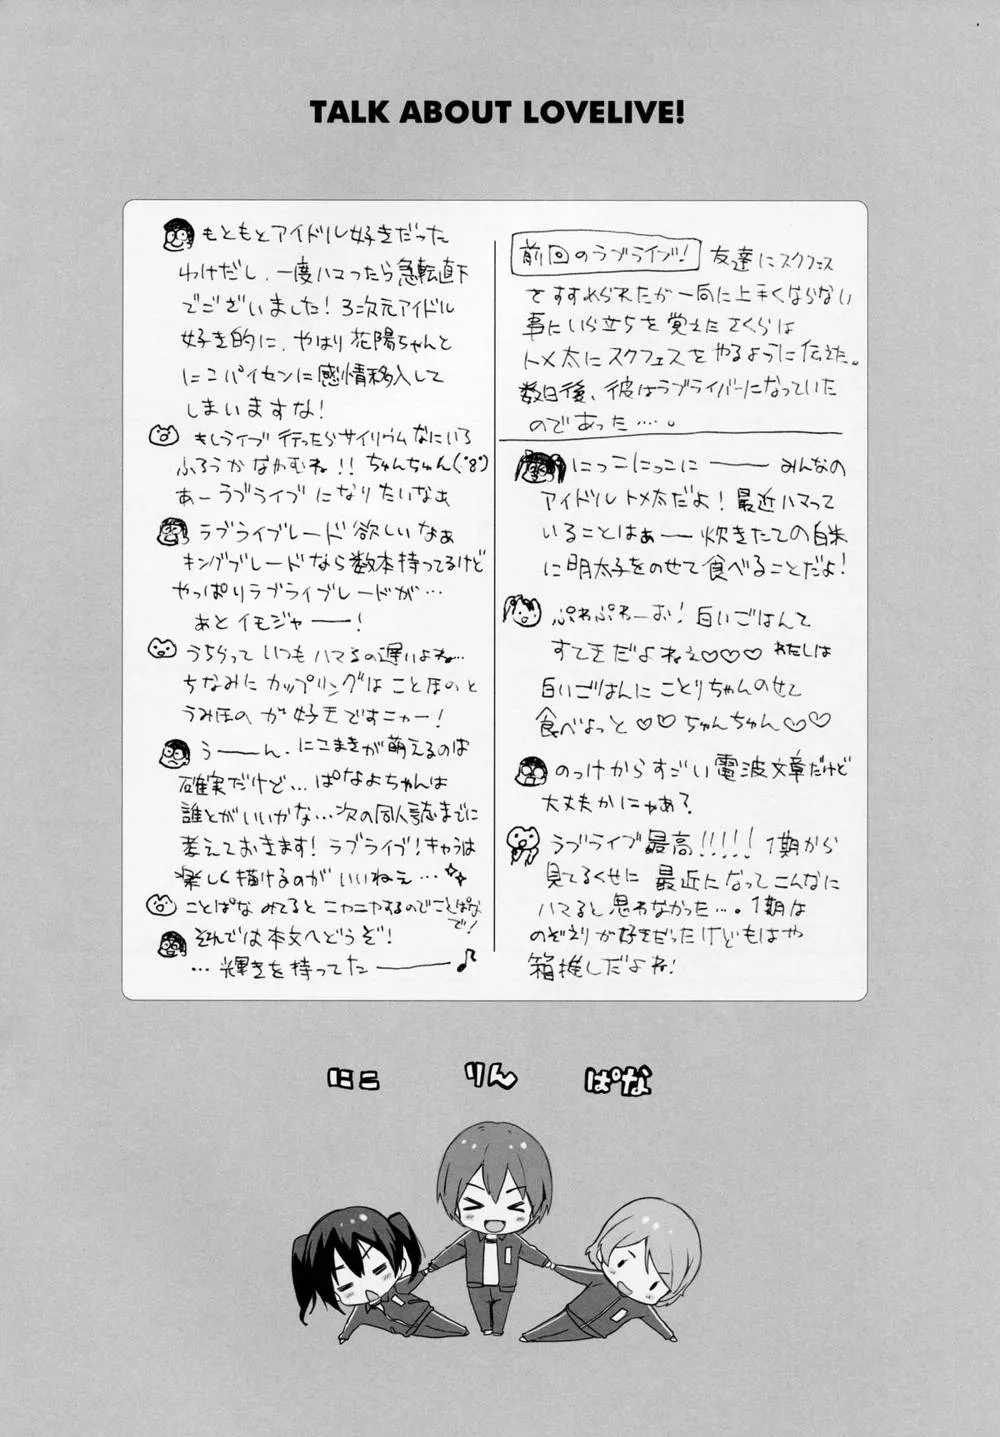 TALK ABOUT LOVELIVE!
前回のラブライブ! 友達にスクフェス
をすすめられたが一向に上手くならない
事にいら立ちを覚えたさくらは
トメ太にスクフェスをやるように伝えた。
数日後、彼はラブライバーになっていた
のであった…。
にっこにっこにー みんなの
アイドル トメ太だよ!最近ハマって
いることはぁー炊きたての白米
に明太子をのせて食べることだよ!
ぷわぷわーお!白いごはんて
すてきだよねぇ♡♡♡ わたしは
白いごはんにことりちゃんのせて
食べよっと♡♡ちゅんちゅん♡♡
のっけからすごい電波文章だけど
大丈夫かにゃあ?
ラブライブ最高!!!!! 1期から
見てるくせに 最近になってこんなに
ハマると思わなかった…。1期は
のぞえりが好きだったけどもはや
箱推しだよね!
もともとアイドル好きだった
わけだし、一度ハマったら急転直下
でございました!3次元アイドル
好き的に、やはり花陽ちゃんと
にこパイセンに感情移入して
しまいますな!
もしライブ行ったらサイリウムなにいろ
ふろうかなやむね!!ちゅんちゅん(・8・)
あーラブライブになりたいなぁ
ラブライブレード欲しいなぁ
キングブレードなら数本持ってるけど
やっぱりラブライブレードが…
あとイモジャー!
うちらっていつもハマるの遅いよね…
ちなみにカップリングはことほのと
うみほのが好きですニャー!
うーん、にこまきが萌えるのは
確実だけど…ぱなよちゃんは
誰とがいいかな…次の同人誌までに
考えておきます!ラブライブ!キャラは
楽しく描けるのがいいねぇ…
ことぱなみてるとニヤニヤするのでことぱな
で!
それでは本文へどうぞ!
…輝きを持ってたー♪
にこ りん ぱな